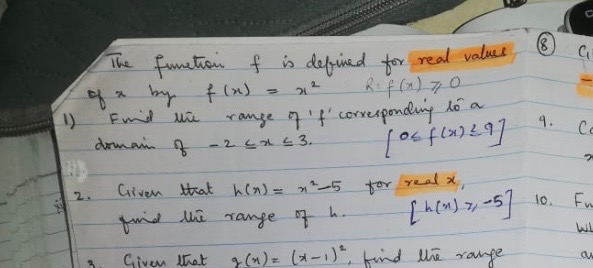 The function f is defined for real values
of x by f(x) = x² R: f(x) ⩾ 0
1) Find the range of 'f' corresponding to a
domain of -2 ≤ x ≤ 3. [0 ≤ f(x) ≤ 9]
2. Given that h(x) = x²-5 for real x,
find the range of h. [h(x) ⩾ -5]
3. Given that g(x) = (x-1)², find the range
8
9.
10.